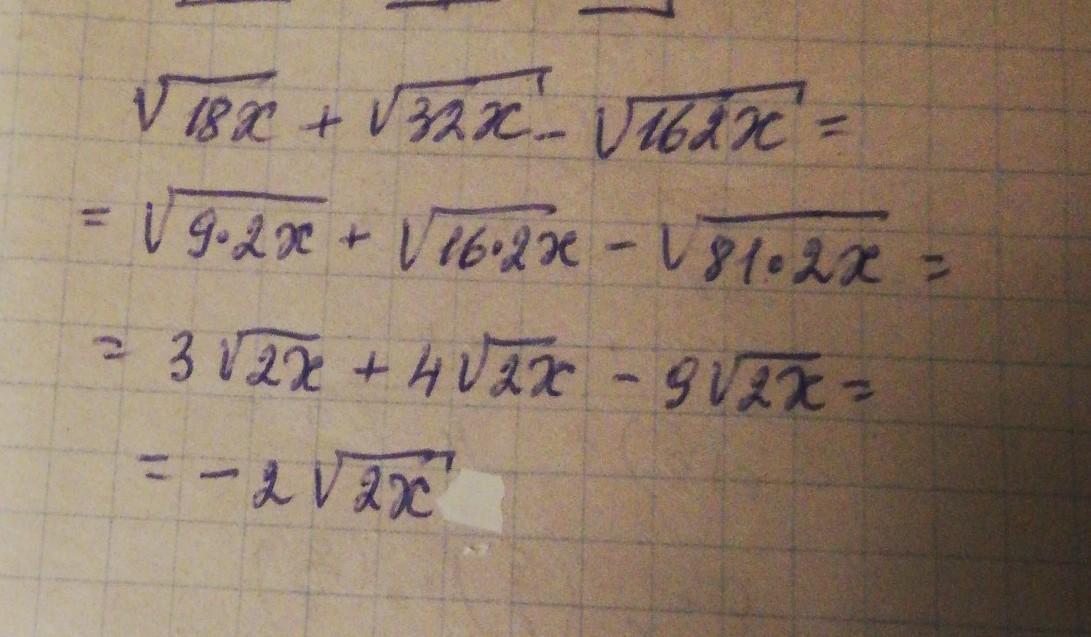 √18x + √32x - √162x =
= √9·2x + √16·2x - √81·2x =
= 3√2x + 4√2x - 9√2x =
= -2√2x